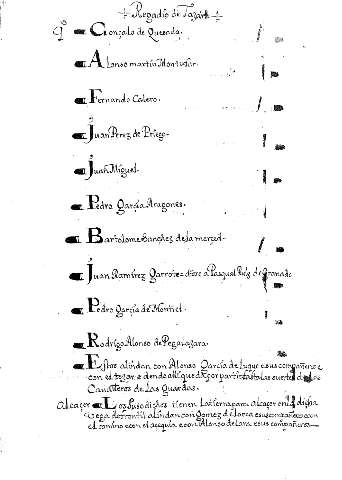 Regadio de Tazarte
Gonçalo de Quesada.
Alonso martin Montosar.
Fernando Calero.
Juan Perez de Priego.
Juan Miguel.
Pedro Garçia Aragones.
Bartolome Sanches de la merced.
Juan Ramirez Garrotes diose a Pasqual Ruiz de Granada
Pedro Garçia de Montiel.
Rodrigo Alonso de Pegalaxara.
Estos alindan con Alonso Garçia de Luque e sus compañeros e
con el tezar e dende alli que de por partir las suertes de los
Canateros de Las Guardas.
Alcaçer Los susodichos tienen la tierra para alcaçer en la dicha
vega de frontil alindan con Gomez de Lorca e sus compañeros con
el camino e con el açequia e con Alonso de Lara e sus compañeros